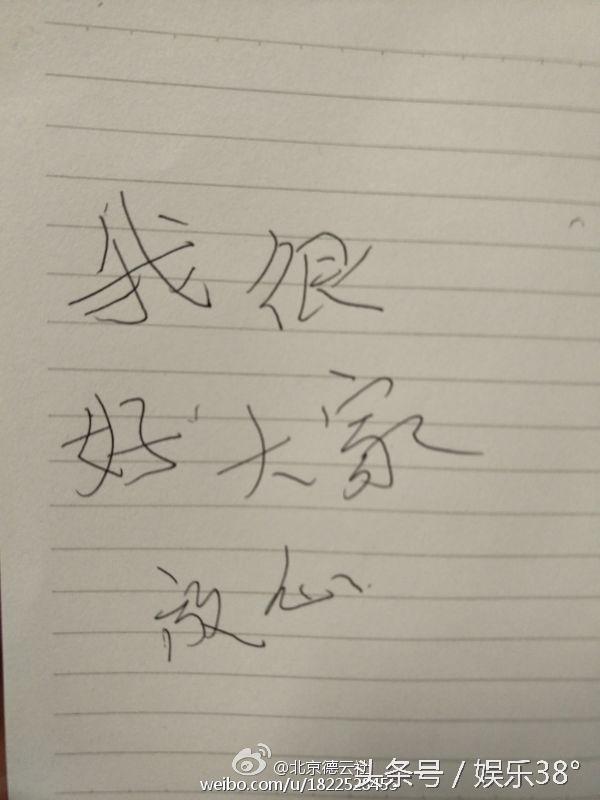 我很
好，大家
放心
@北京德云社
头条号 / 娱乐38°
weibo.com/u/1822528453